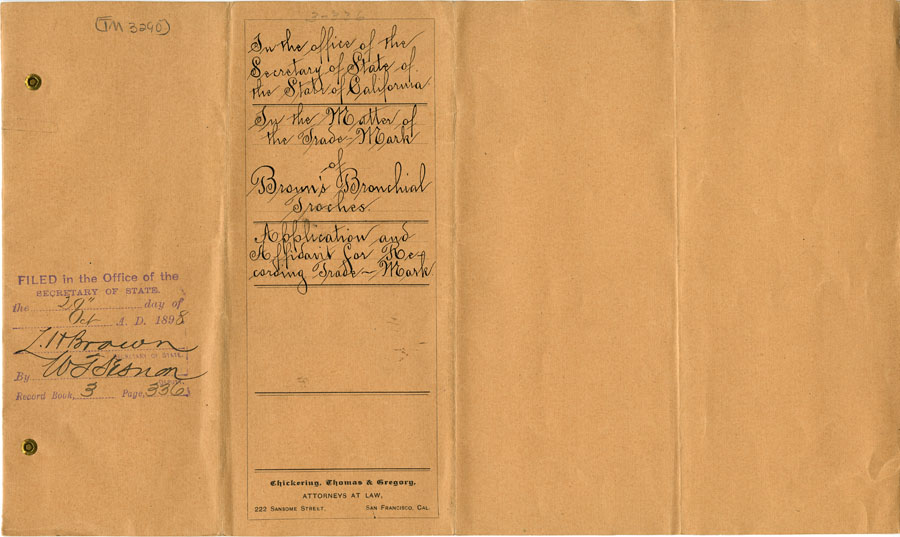 (TM 3290)
3-336
In the office of the
Secretary of State of
the State of California
In the Matter of
the Trade-Mark
of
Brown's Bronchial
Troches.
Application and
Affidavit for Re-
cording Trade-Mark
Chickering, Thomas & Gregory,
ATTORNEYS AT LAW,
222 SANSOME STREET. SAN FRANCISCO, CAL.
FILED in the Office of the
SECRETARY OF STATE.
the 29" day of
Oct A. D. 1898
L. H. Brown
SECRETARY OF STATE.
By W T Sesnon
Record Book, 3 Page, 336